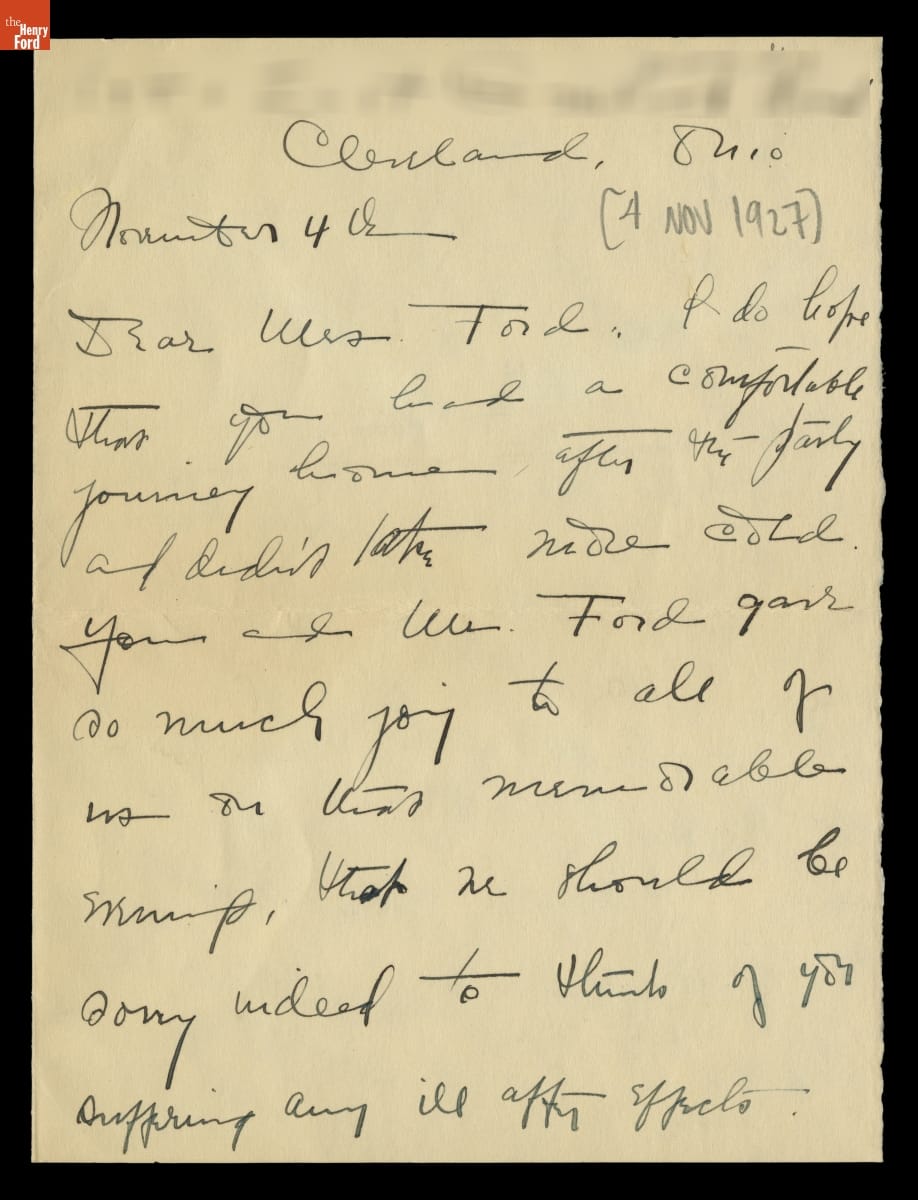 the
Henry
Ford
Cleveland, Ohio
November 4th
[4 NOV 1927]
Dear Mrs. Ford: I do hope
that you had a comfortable
journey home, after the party
and didn't take more cold.
You and Mr. Ford gave
so much joy to all of
us on that memorable
evening, that we should be
sorry indeed to think of you
suffering any ill after effects.